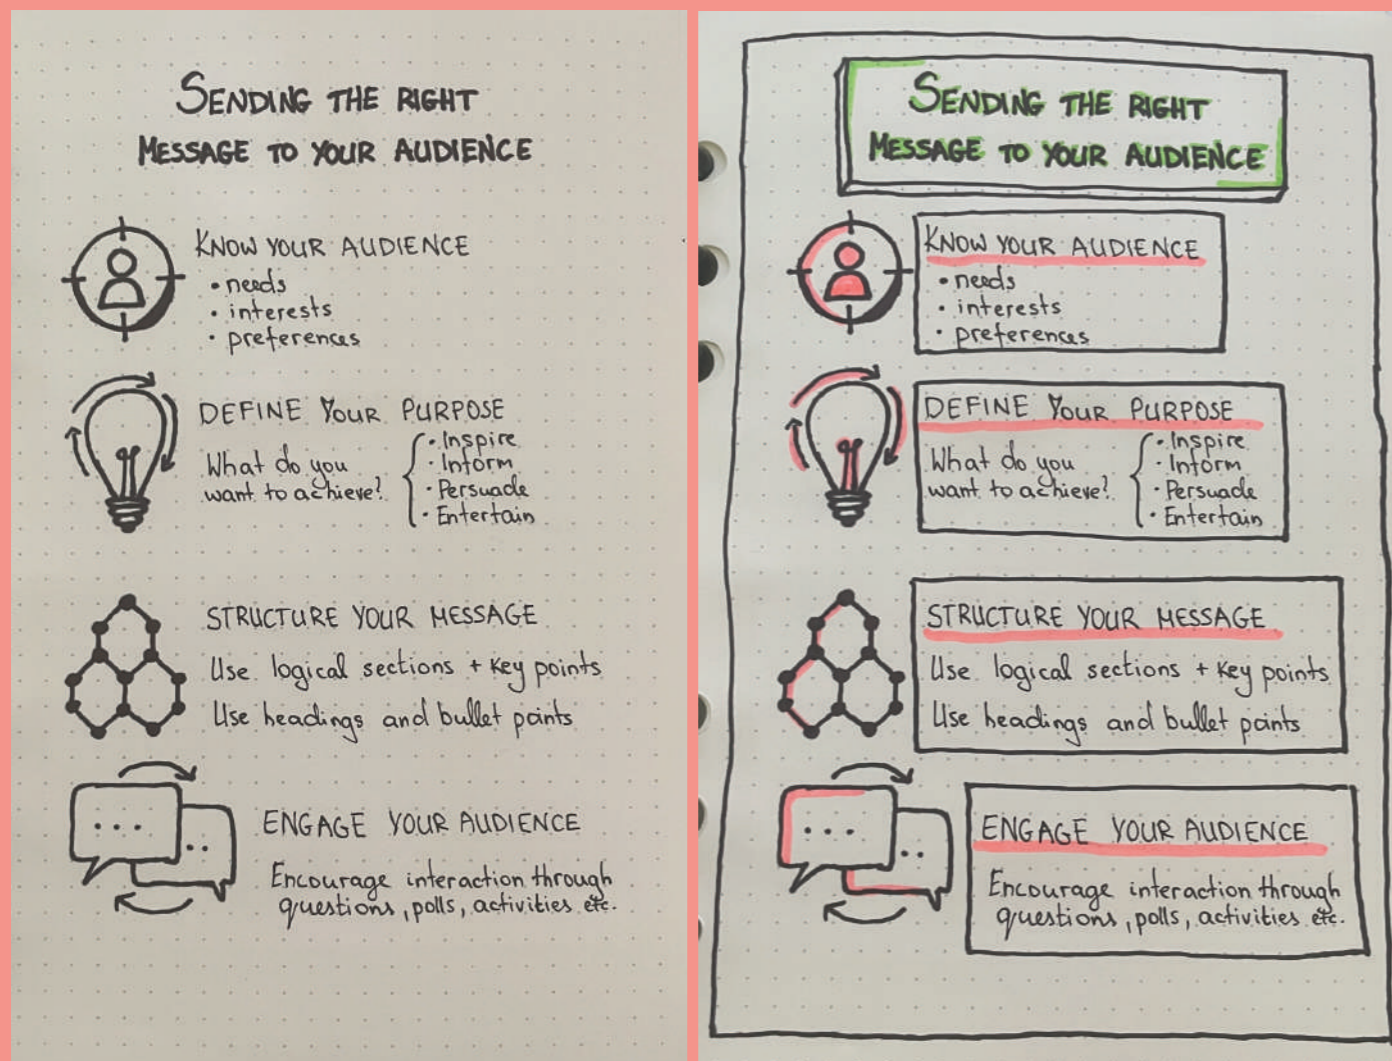 SENDING THE RIGHT
MESSAGE TO YOUR AUDIENCE
KNOW YOUR AUDIENCE
• needs
• interests
• preferences
DEFINE YOUR PURPOSE
What do you
want to achieve?
• Inspire
• Inform
• Persuade
• Entertain
STRUCTURE YOUR MESSAGE
Use logical sections + key points
Use headings and bullet points
ENGAGE YOUR AUDIENCE
Encourage interaction through
questions, polls, activities etc.
SENDING THE RIGHT
MESSAGE TO YOUR AUDIENCE
KNOW YOUR AUDIENCE
• needs
• interests
• preferences
DEFINE YOUR PURPOSE
What do you
want to achieve?
• Inspire
• Inform
• Persuade
• Entertain
STRUCTURE YOUR MESSAGE
Use logical sections + key points
Use headings and bullet points
ENGAGE YOUR AUDIENCE
Encourage interaction through
questions, polls, activities etc.